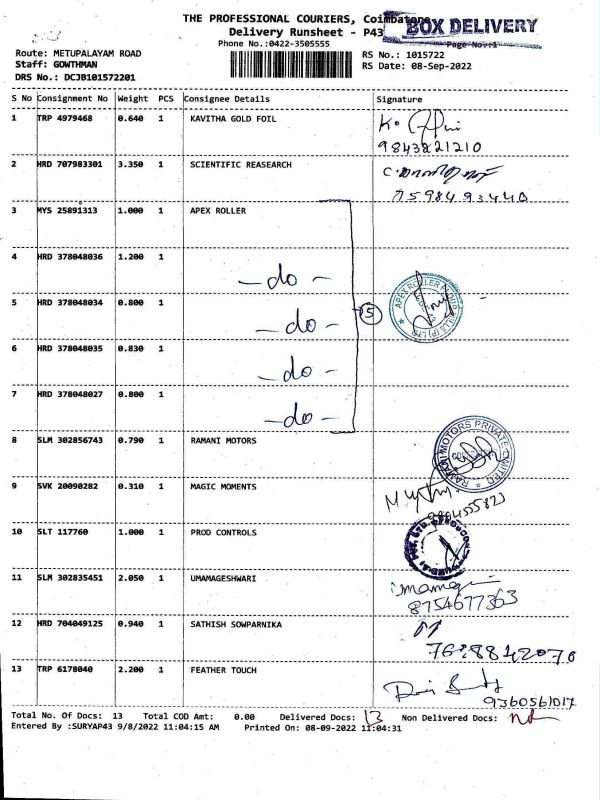 THE PROFESSIONAL COURIERS, Coimbatore
BOX DELIVERY
Delivery Runsheet - P43
Page No.:1
Phone No.:0422-3505555
Route: METUPALAYAM ROAD
RS No.: 1015722
Staff: GOWTHMAN
RS Date: 08-Sep-2022
DRS No.: DCJB101572201
S No Consignment No Weight PCS Consignee Details Signature
1 TRP 4979468 0.640 1 KAVITHA GOLD FOIL
9843221210
2 HRD 707983301 3.350 1 SCIENTIFIC REASEARCH
7598493440
3 MYS 25891313 1.000 1 APEX ROLLER
4 HRD 378048036 1.200 1 -do-
5 HRD 378048034 0.800 1 -do- 5
6 HRD 378048035 0.830 1 -do-
7 HRD 378048027 0.800 1 -do-
8 SLM 302856743 0.790 1 RAMANI MOTORS
RAMANI MOTORS PRIVATE LIMITED
9 SVK 20090282 0.310 1 MAGIC MOMENTS
10 SLT 117760 1.000 1 PROD CONTROLS
11 SLM 302835451 2.050 1 UMAMAGESHWARI
8754677363
12 HRD 704049125 0.940 1 SATHISH SOWPARNIKA
13 TRP 6178040 2.200 1 FEATHER TOUCH
9360561017
Total No. Of Docs: 13 Total COD Amt: 0.00 Delivered Docs: 13 Non Delivered Docs:
Entered By :SURYAP43 9/8/2022 11:04:15 AM Printed On: 08-09-2022 11:04:31